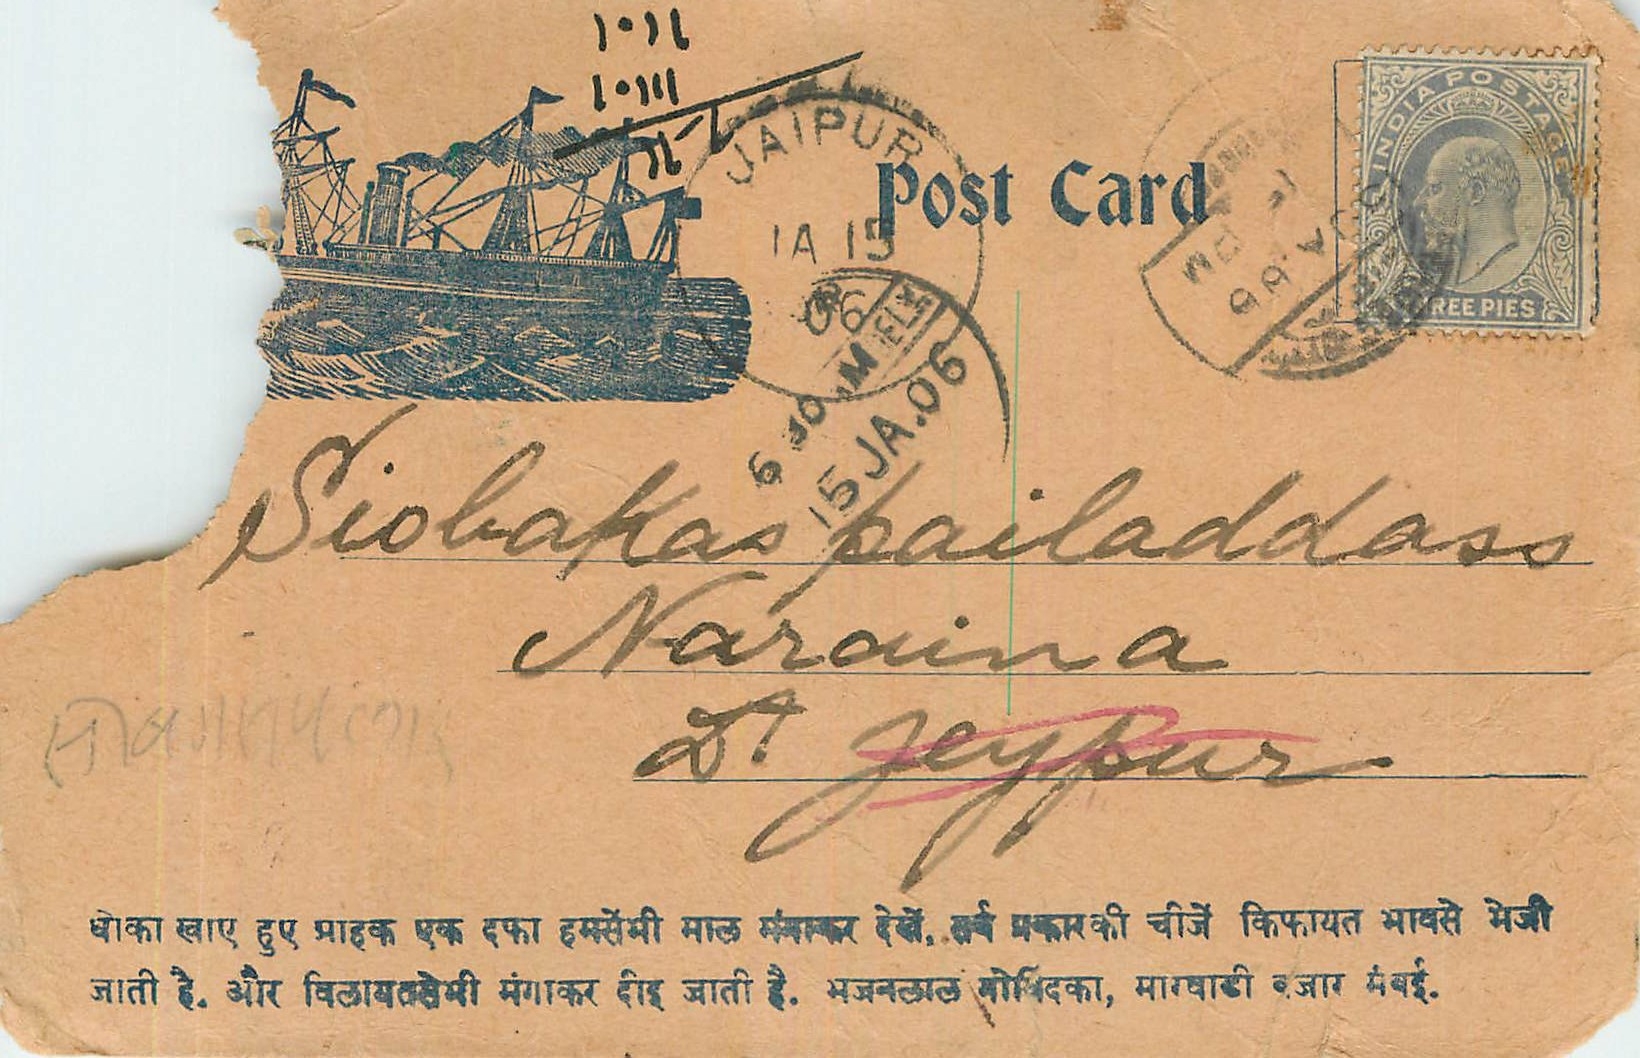 Post Card
INDIA POSTAGE
THREE PIES
JAIPUR
JA 15
06
15 JA.06
Siobakas pailaddass
Naraina
Dt Jeypur
धोका खाए हुए ग्राहक एक दफा हमसेंभी माल मंगाकर देखें. सर्व प्रकारकी चीजें किफायत भावसे भेजी
जाती है. और विलायतसेभी मंगाकर दीइ जाती है. भजनलाल गोविंदका, मारवाडी बजार मंबई.